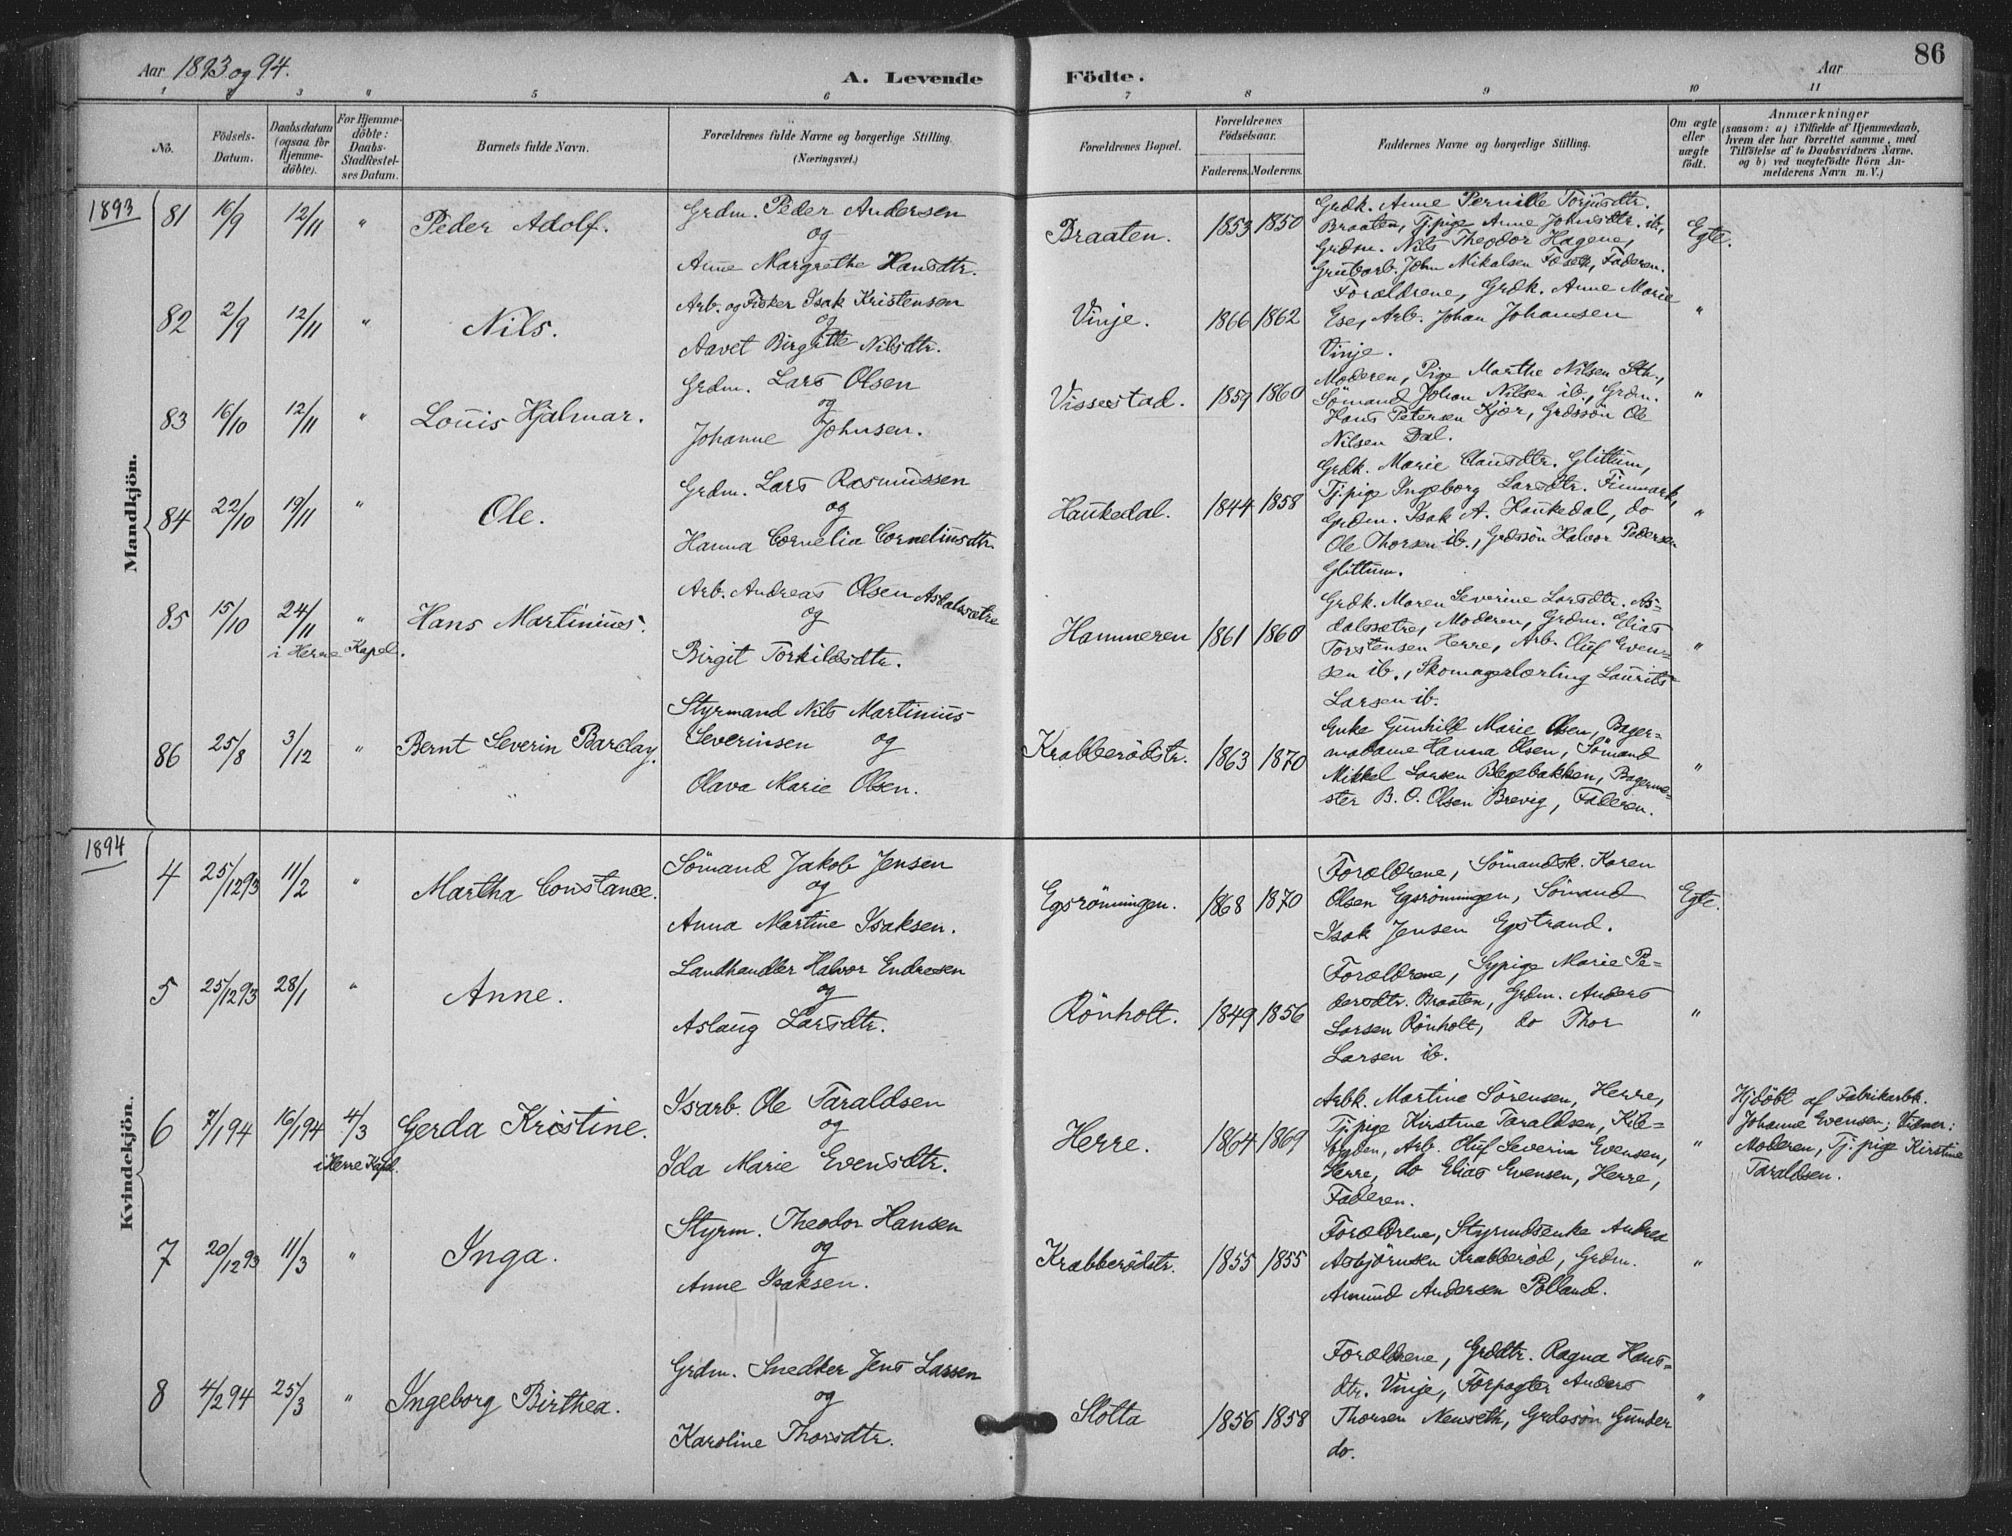 86
Aar 1893 og 94.
A. Levende Födte.
Aar
1 2 3 " 5 6 7 8 9 10 11
No.
Födsels-Datum.
Daabsdatum (ogsaa for Hjemme-döbte).
For Hjemme-döbte: Daabs-Stadfæstel-ses Datum.
Barnets fulde Navn.
Forældrenes fulde Navne og borgerlige Stilling. (Næringsvei.)
Forældrenes Bopæl.
Forældrenes Födselsaar.
Faderens. Moderens.
Faddernes Navne og borgerlige Stilling.
Om ægte eller uægte födt.
Anmærkninger
(saasom: a) i Tilfælde af Hjemmedaab,
hvem der har forrettet samme, med
Tilföielse af to Daabsvidners Navne,
og b) ved uægtefödte Börn An-
melderens Navn m. V.)
Mandkjön.
1893
81 16/9 12/11 " Peder Adolf.
Grdm. Peder Andersen
og
Anne Margrethe Hansdtr.
Braaten. 1853 1850
Grdk. Anne Pernille Torjusdtr.
Braaten, Tj.pige Anne Johnsdtr. ib.,
Grdm. Nils Theodor Hagene,
Grubarb. John Mikalsen Foseth, Faderen.
Egte.
82 2/9 12/11 " Nils.
Arb. og Fisker Isak Kristensen
og
Aavet Birgitte Nilsdtr.
Vinje. 1866 1862
Forældrene, Grdk. Anne Marie
Ese, Arb. Johan Johansen
Vinje.
"
83 16/10 12/11 " Louis Hjalmar.
Grdm. Lars Olsen
og
Johanne Johnsen.
Vissestad. 1859 1860
Moderen, Pige Marthe Nilsen Sth.,
Sömand Johan Nilsen ib., Grdm.
Hans Petersen Kjær, Grdssön Ole
Nilsen Dal.
"
84 22/10 19/11 " Ole.
Grdm. Lars Rasmussen
og
Hanna Cornelia Corneliusdtr.
Haukedal. 1844 1858
Grdk. Marie Clausdtr. Glittum,
Tj.pige Ingeborg Larsdtr. Finmark,
Grdm. Isak A. Haukedal, do
Ole Thorsen ib., Grdssön Halvor Pedersen
Glittum.
"
85 15/10 24/11 " Hans Martinius.
i Herre Kapel.
Arb. Andreas Olsen Asdalssætre
og
Birgit Torkildsdtr.
Hammeren 1861 1860
Grdk. Maren Severine Larsdtr. As-
dalssætre, Moderen, Grdm. Elias
Torstensen Herre, Arb. Oluf Even-
sen ib., Skomagerlærling Laurits
Larsen ib.
"
86 25/8 3/12 " Bernt Severin Barclay.
Styrmand Nils Martinius
Severinsen og
Olava Marie Olsen.
Krabberödstr. 1863 1870
Enke Gunhild Marie Olsen, Bager-
madame Hanna Olsen, Sömand
Mikkel Larsen Blegebakken, Bagerme-
ster B. O. Olsen Brevig, Faderen.
"
Kvindekjön.
1894
4 25/12 93 11/2 " Martha Constance.
Sömand Jakob Jensen
og
Anna Martine Isaksen.
Egsröningen. 1868 1870
Forældrene, Sömandsk. Karen
Olsen Egsröningen, Sömand
Isak Jensen Egstrand.
Egte.
5 25/12 93 28/1 " Anne.
Landhandler Halvor Endresen
og
Aslaug Larsdtr.
Rönholt. 1849 1856
Forældrene, Sypige Marie Pe-
dersdtr. Braaten, Grdm. Anders
Larsen Rönholt, do Thor
Larsen ib.
"
6 7/1 94 16/1 94 4/3 Gerda Kristine.
i Herre Kapel.
Isarb. Ole Taraldsen
og
Ida Marie Evensdtr.
Herre. 1864 1869
Arbk. Martine Sörensen, Herre,
Tj.pige Kirstine Taraldsen, Kile-
bygden, Arb. Oluf Severin Evensen,
Herre, do Elias Evensen, Herre,
Faderen.
"
Hjdöbt af Fabrikarbk.
Johanne Evensen; Vidner:
Moderen, Tj.pige Kirstine
Taraldsen.
7 20/12 93 11/3 " Inga.
Styrm. Theodor Hansen
og
Anne Isaksen.
Krabberödstr. 1855 1855
Forældrene, Styrmdsenke Andrea
Asbjörnsen Krabberöd, Grdm.
Amund Andersen Polland.
"
8 4/2 94 25/3 " Ingeborg Birthea.
Grdm. Snedker Jens Larsen
og
Karoline Thorsdtr.
Slotta 1856 1858
Forældrene, Grddtr. Ragna Hans-
dtr. Vinje, Forpagter Anders
Thorsen Nenseth, Grdssön Gunder
do.
"